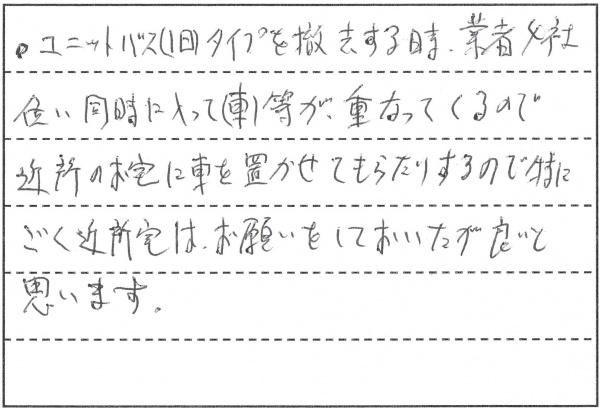 •ユニットバス(1日)タイプを撤去する時、業者4社
位い同時に入って(車)等が、重なってくるので
近所のお宅に車を置かせてもらたりするので特に
ごく近所宅は、お願いをしておいたが良いと
思います。